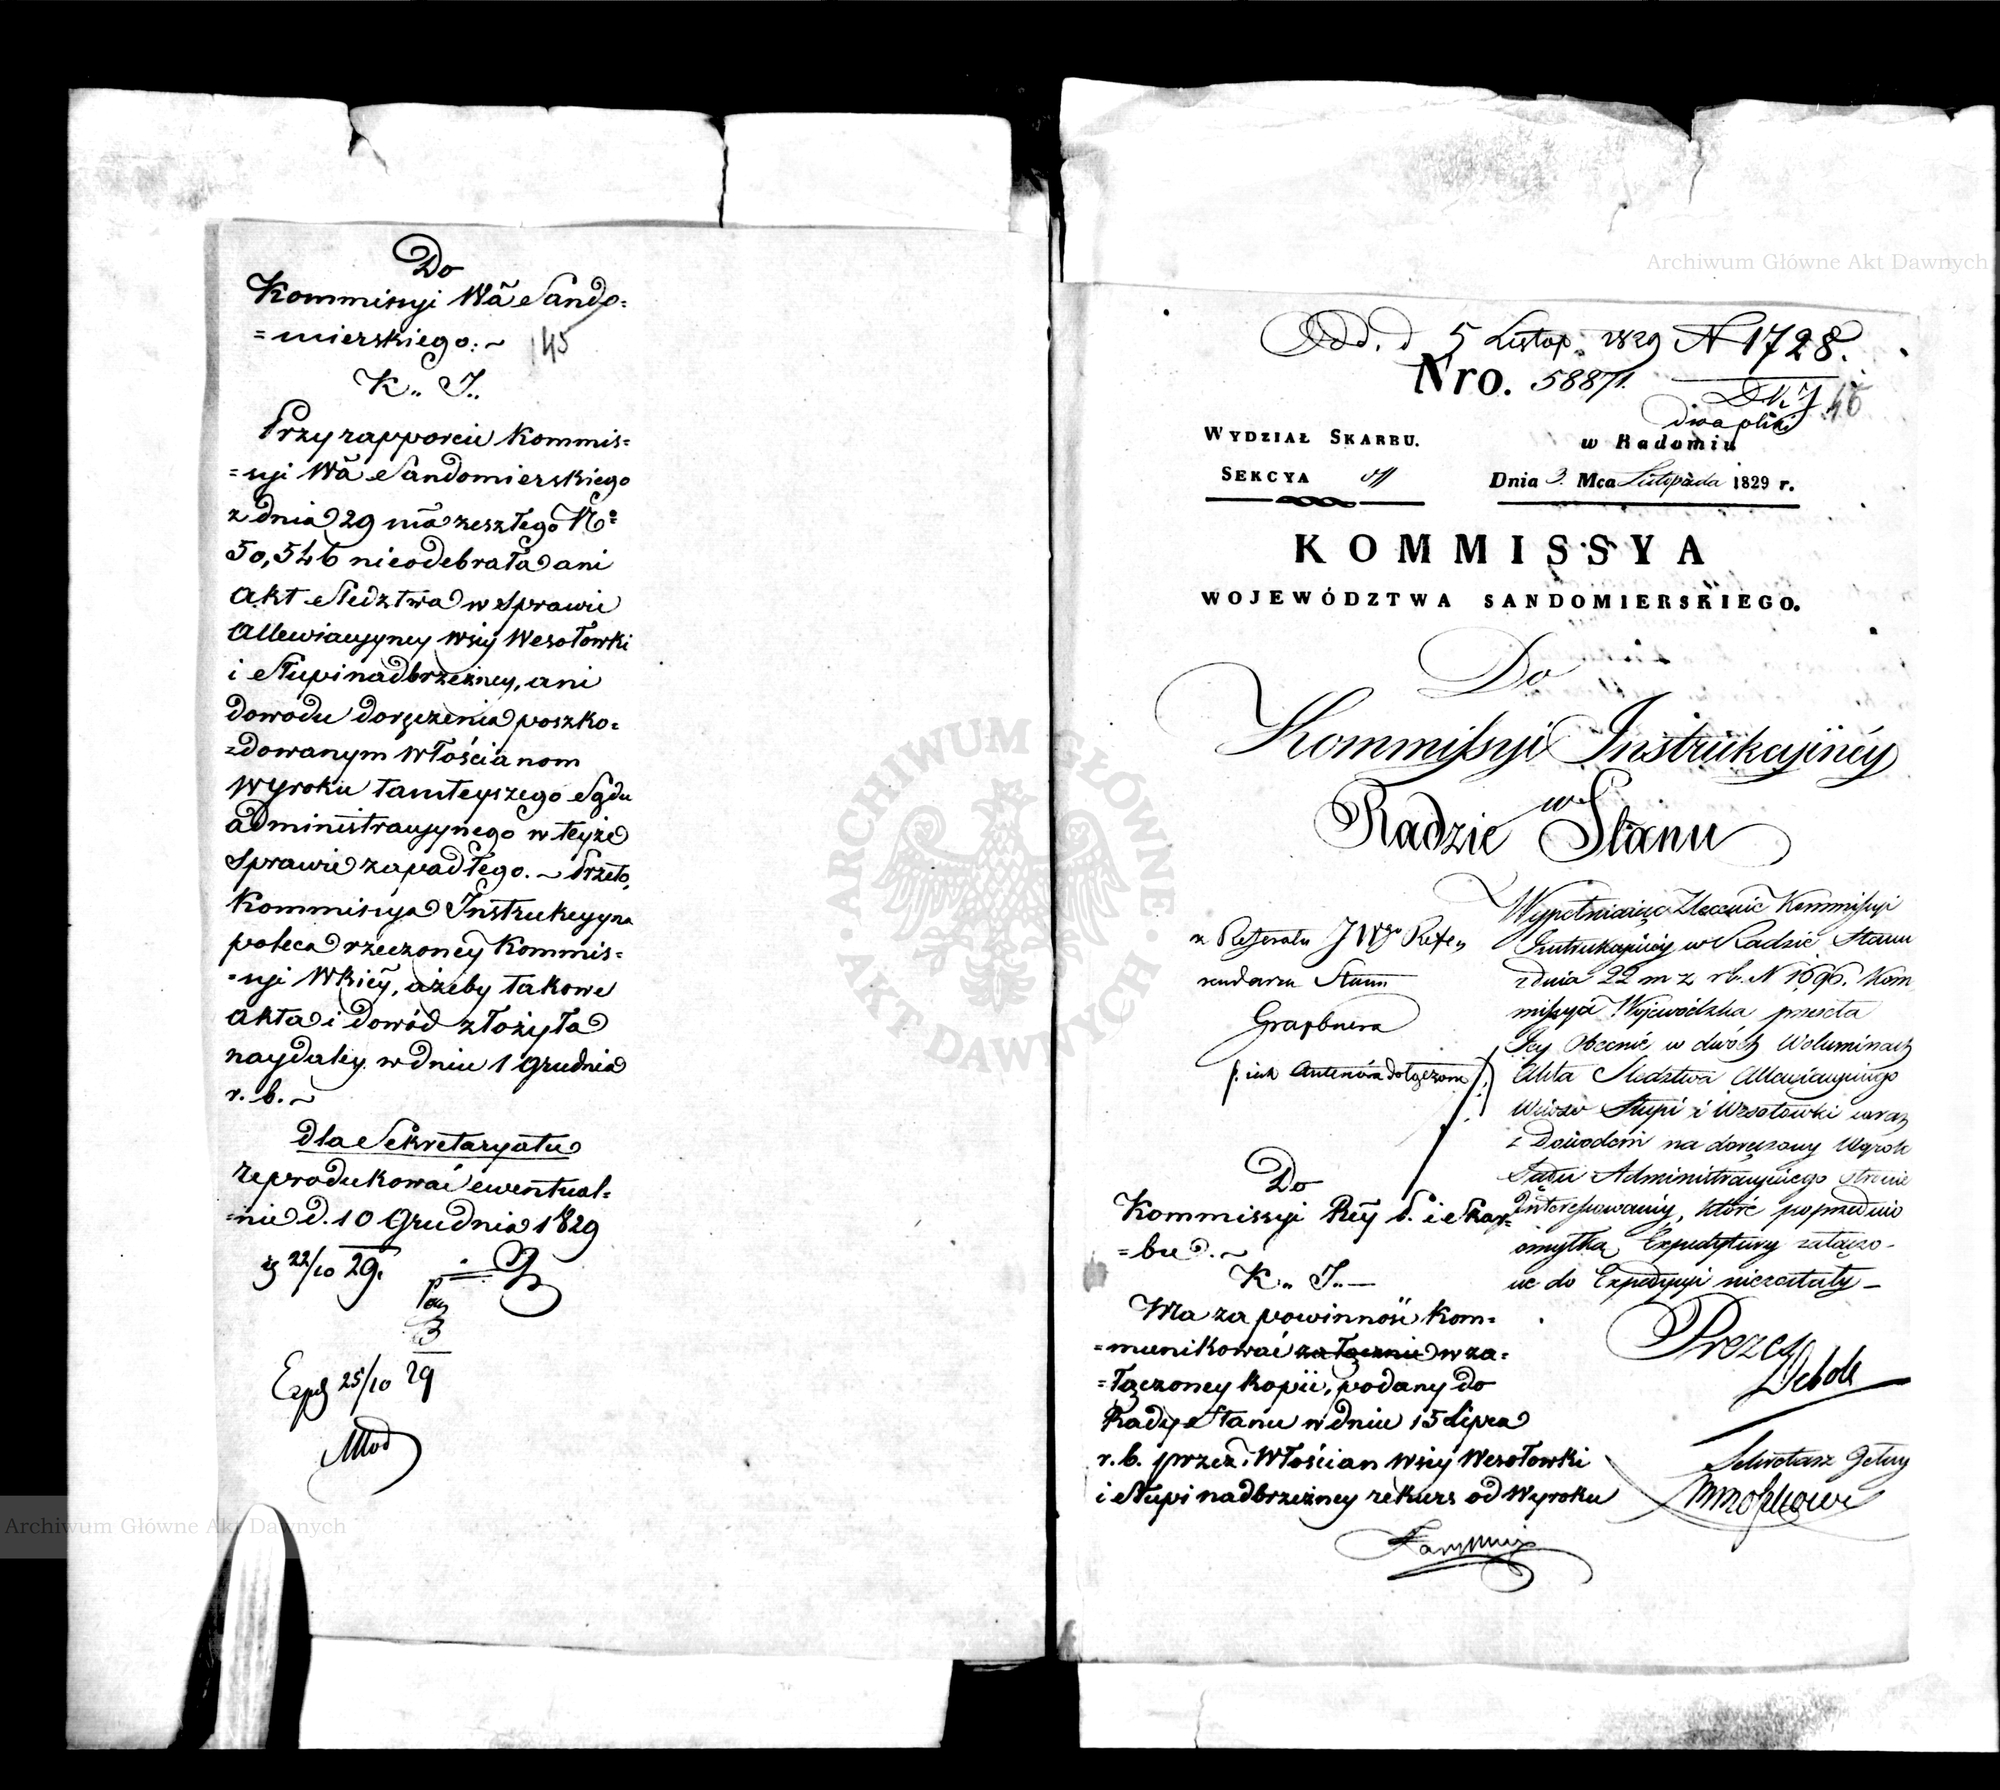 Do
Kommissyi Wã Sando=
=mierskiego.~
145
K.. J..
Przy rapporcie Kommis=
=syi Wã Sandomierskiego
z dnia 29 mã zeszłego No
50,546 nieodebrała ani
Akt Sledztwa w Sprawie
Allewiacyyney wsiy Wesołowki
i Słupi nadbrzeżney, ani
dowodu doręczenia poszko=
=dowanym włościanom
wyroku tamteyszego Sądu
administracyynego w teyże
Sprawie zapadłego.~ Przeto,
Kommissya Instrukcyyna
poleca rzeczoney Kommis=
=syi Wkiéy, ażeby takowe
akta i dowód złożyła
naydaley w dniu 1 Grudnia
r. b.~
dla Sekretaryatu
reprodukować ewentual=
=nie d. 10 Grudnia 1829
22/10 29.
Exp 25/10 29
Odd. d 5 Listop. 1829 N 1728.
Nro. 58871.
dwa pliki
WYDZIAŁ SKARBU.
w Radomiu
SEKCYA
Dnia 3. Mca Listopada 1829 r.
KOMMISSYA
WOJEWÓDZTWA SANDOMIERSKIEGO.
Do
Kommissyi Instrukcyinéy
w
Radzie Stanu
z Referatu JWgo Refe
rendarza Stanu
Graybnera
Wypełniaiąc Zlecenie Kommissyi
Instrukcyinéy w Radzie Stanu
z dnia 22 m z rb. N 1696. Kom
missya Wojewódzka przesela
Jey Obecnie w dwóch Woluminach
Akta Sledztwa Allewiacyinego
Wsiów Słupi i Wesołowki wraz
z Dowodem na doręczony Wyrok
Sądu Administracyinego stronie
Interessowanéy, które poprzednio
omyłką Expedytury załączo-
ne do Expedycyi niezostały_
Prezes
Deboli
Sekretarz Jelny
Do
Kommissyi Réy P. i Skar=
=bu.~
K.. J..—
Ma za powinność kom=
=munikować załącznie w za=
=łączoney kopii, podany do
Rady Stanu w dniu 15 Lipca
r. b. przez Włościan wsiy Wesołowki
i Słupi nadbrzeżney rekurs od Wyroku
Archiwum Główne Akt Dawnych
Archiwum Główne Akt Dawnych
ARCHIWUM GŁÓWNE AKT DAWNYCH